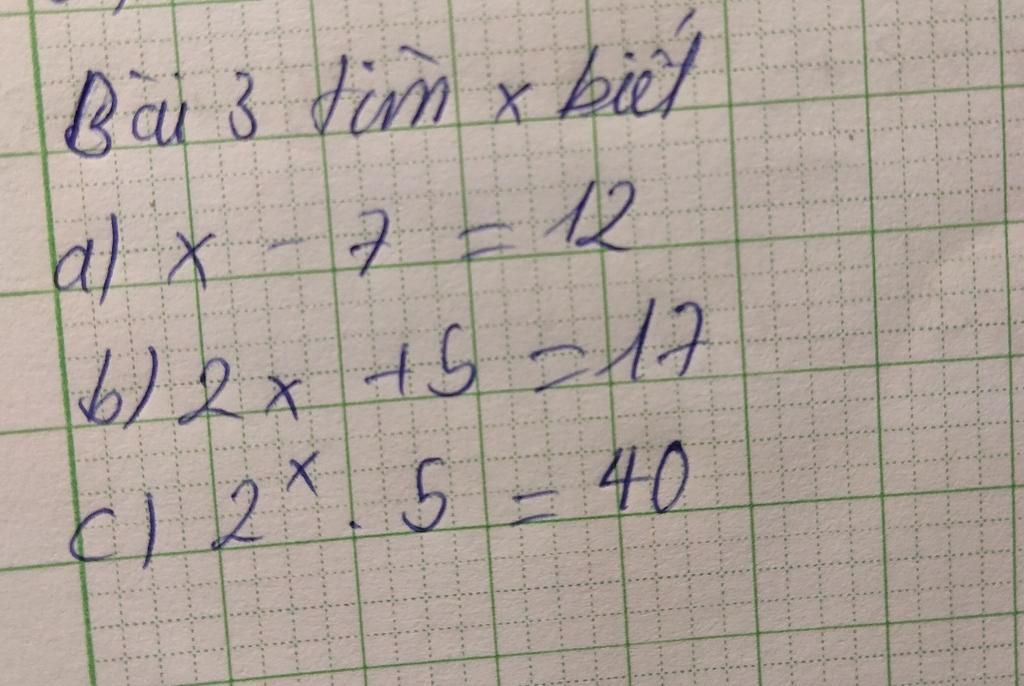 Bài 3 tìm x biết
a) x - 7 = 12
b) 2x + 5 = 17
c) 2ˣ . 5 = 40